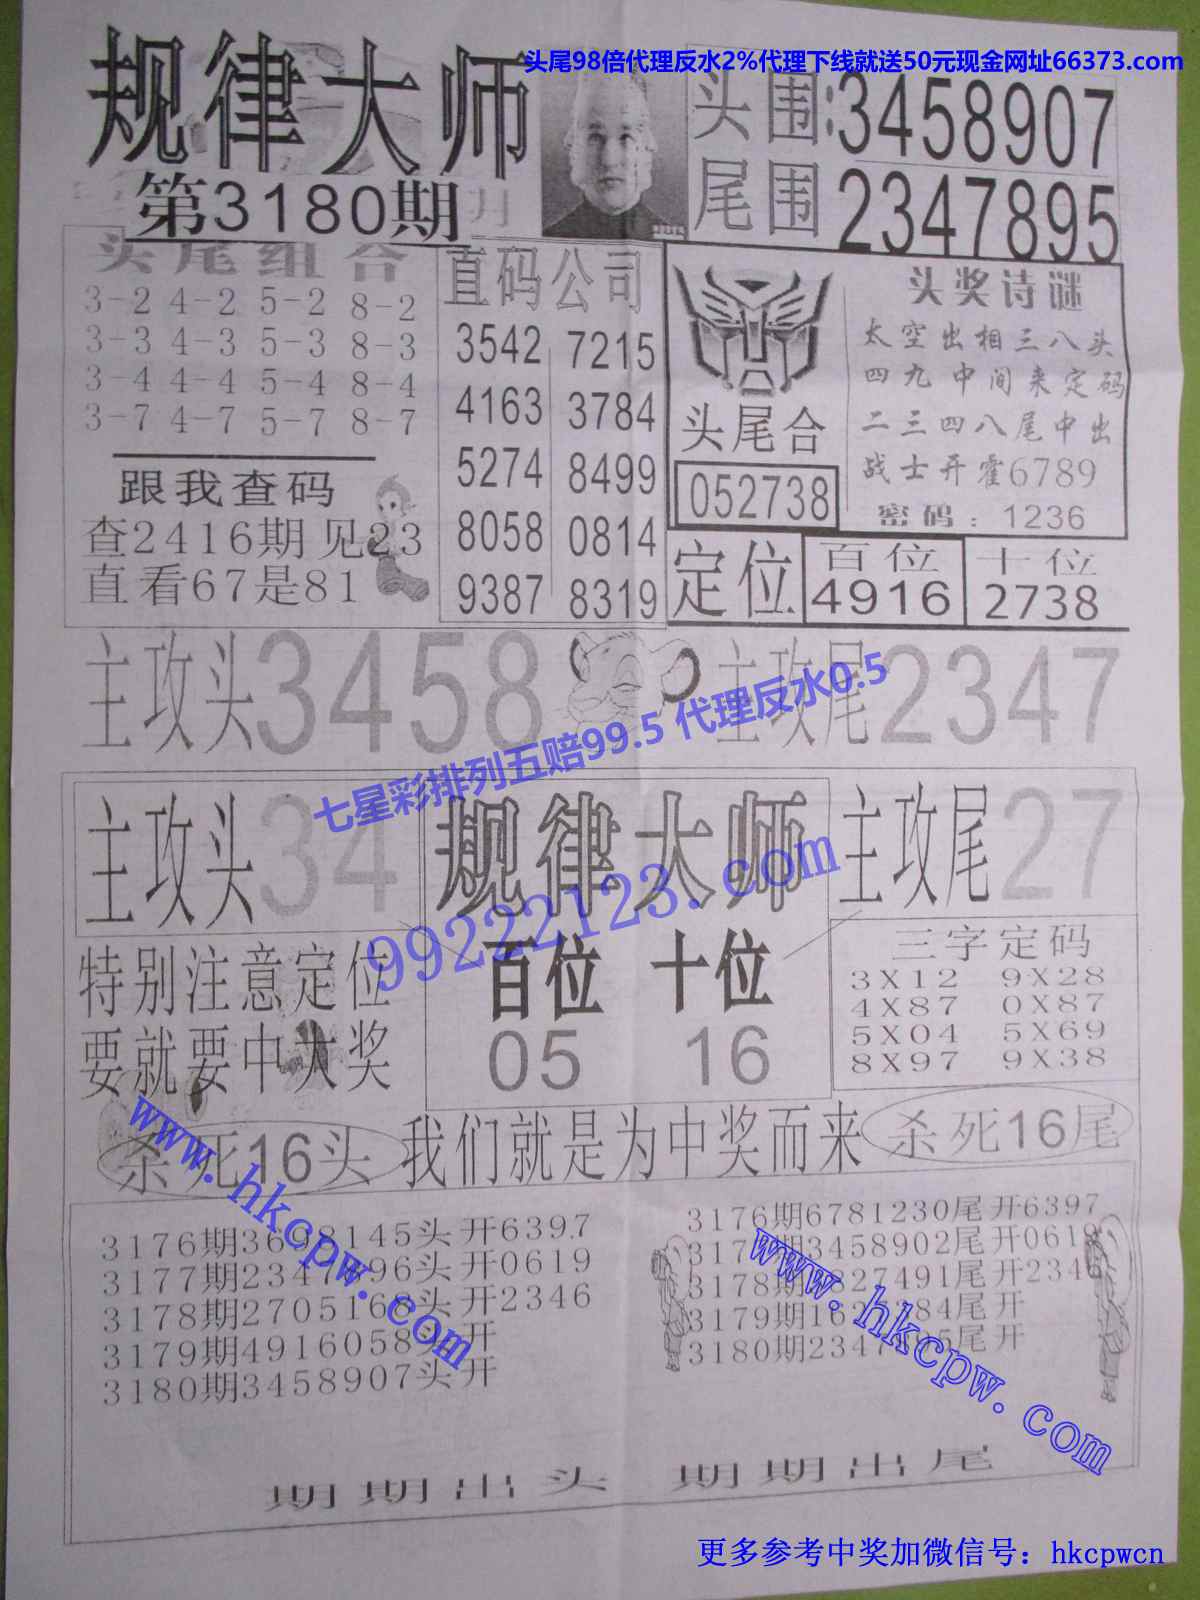 头尾98倍代理反水2%代理下线就送50元现金网址66373.com
规律大师
第3180期
头围:3458907
尾围2347895
头尾组合
3-2 4-2 5-2 8-2
3-3 4-3 5-3 8-3
3-4 4-4 5-4 8-4
3-7 4-7 5-7 8-7
跟我查码
查2416期见23
直看67是81
直码公司
3542 7215
4163 3784
5274 8499
8058 0814
9387 8319
头尾合
052738
头奖诗谜
太空出相三八头
四九中间来定码
二三四八尾中出
战士开霍6789
密码:1236
定位
百位
4916
十位
2738
主攻头3458
主攻尾2347
七星彩排列五赔99.5 代理反水0.5
主攻头34
规律大师
主攻尾27
99222123.com
特别注意定位
要就要中大奖
百位 十位
05 16
三字定码
3X12 9X28
4X87 0X87
5X04 5X69
8X97 9X38
杀死16头
我们就是为中奖而来
杀死16尾
www.hkcpw.com
3176期3698145头开6397
3177期2347896头开0619
3178期2705168头开2346
3179期4916058头开
3180期3458907头开
www.hkcpw.com
3176期6781230尾开6397
3458902尾开0619
3178期 827491尾开234
3179期16 7384尾开
3180期2347895尾开
期期出头 期期出尾
更多参考中奖加微信号：hkcpwcn